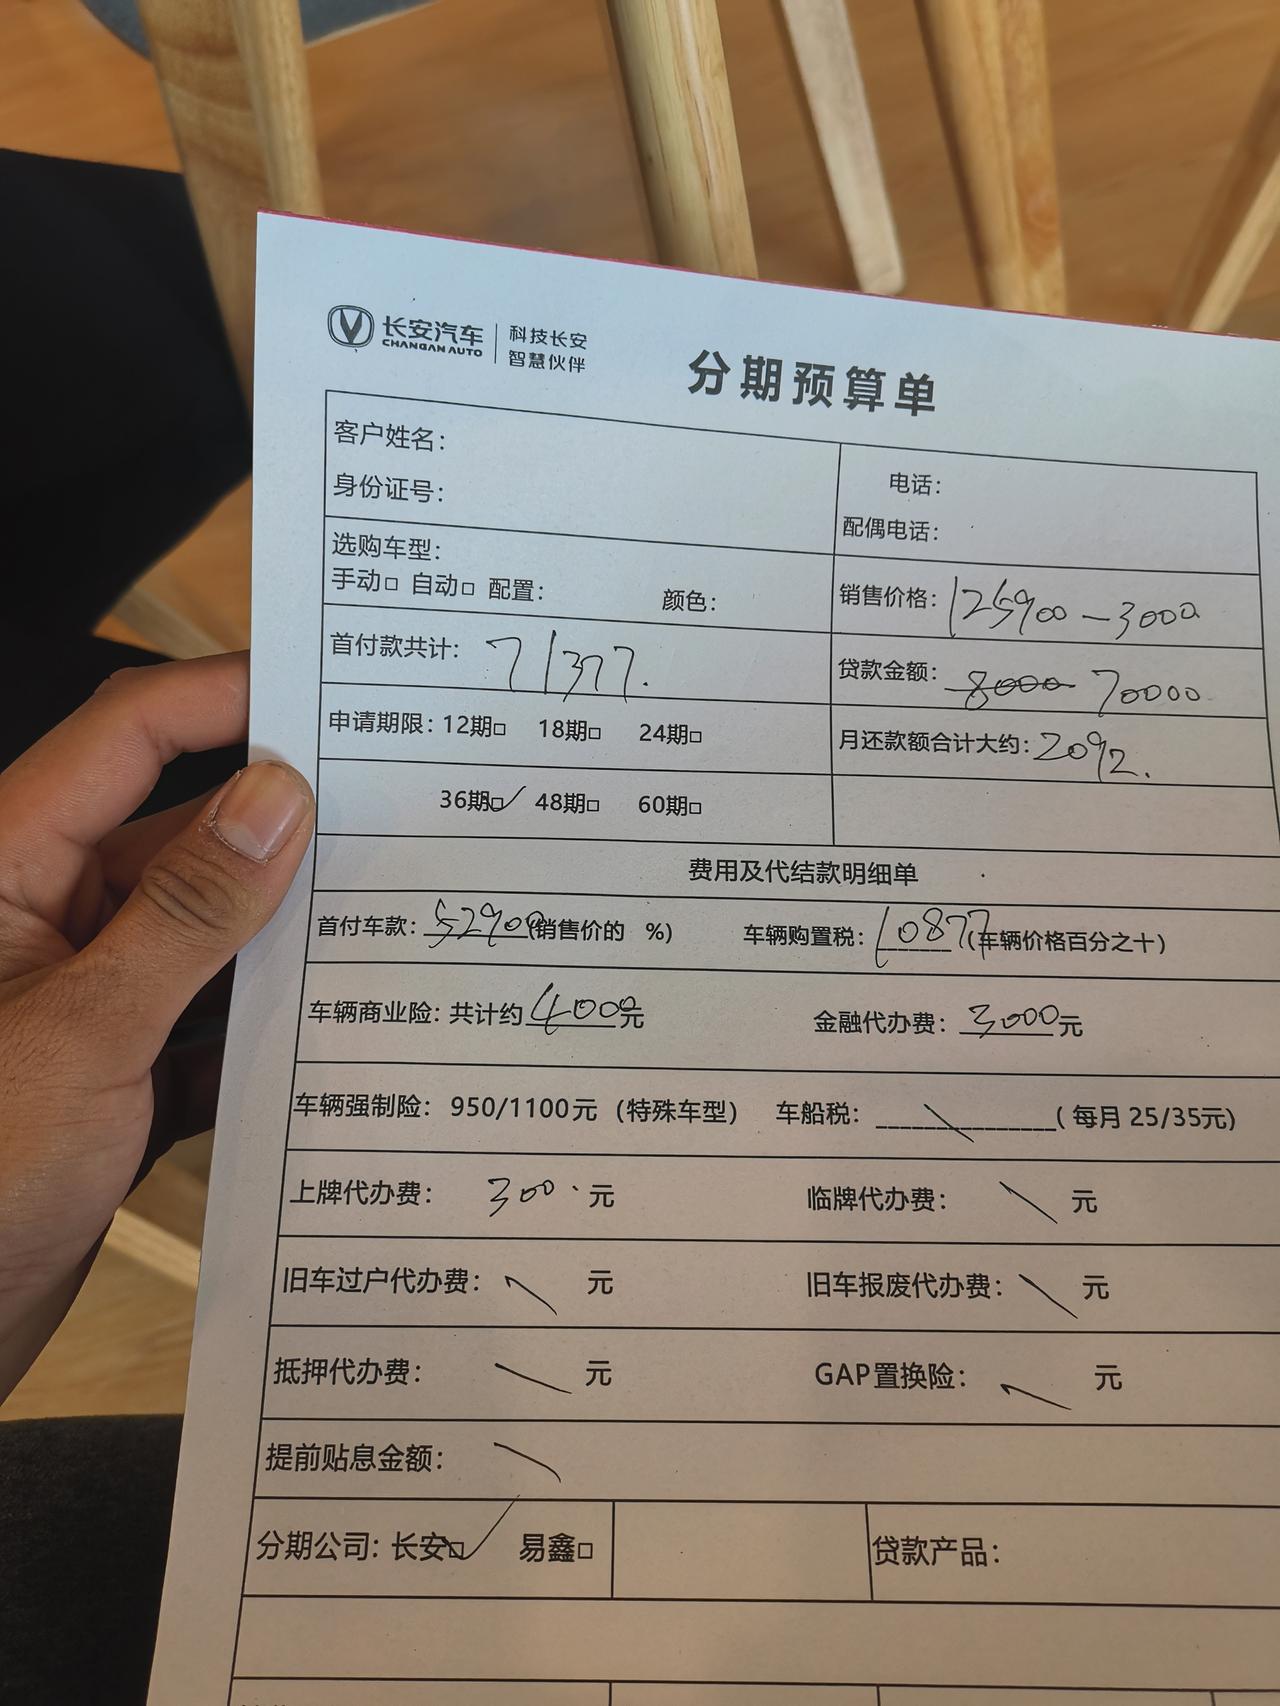 长安汽车 科技长安
CHANGAN AUTO 智慧伙伴
分期预算单
客户姓名：
电话：
身份证号：
配偶电话：
选购车型：
手动□ 自动□ 配置： 颜色：
销售价格：125900-3000
首付款共计：71377.
贷款金额：8000 70000
申请期限：12期□ 18期□ 24期□
月还款额合计大约：2092.
36期□✓ 48期□ 60期□
费用及代结款明细单
首付车款：52900(销售价的 %) 车辆购置税：10877(车辆价格百分之十)
车辆商业险：共计约4000元 金融代办费：3000元
车辆强制险：950/1100元（特殊车型） 车船税：\(每月 25/35元)
上牌代办费：300元 临牌代办费：\元
旧车过户代办费：\元 旧车报废代办费：\元
抵押代办费：\元 GAP置换险：\元
提前贴息金额：\
分期公司：长安□✓ 易鑫□ 贷款产品：